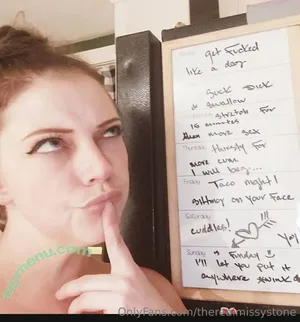 get Fucked
like a dog
Suck Dick
& swallow
stretch For
15 minutes
then more sex
Thursday
thirsty For
more cum
I will beg...
Friday
Taco night!
sitting on your Face
Saturday
cuddles!
Sunday
Funday
I'll let you put it
anywhere
OnlyFans.com/therealmissystone